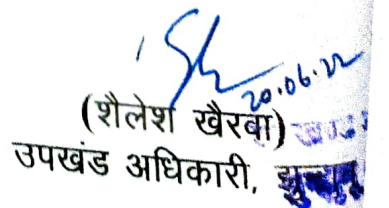 20.06.22
(शैलेश खैरवा)
उपखंड अधिकारी,